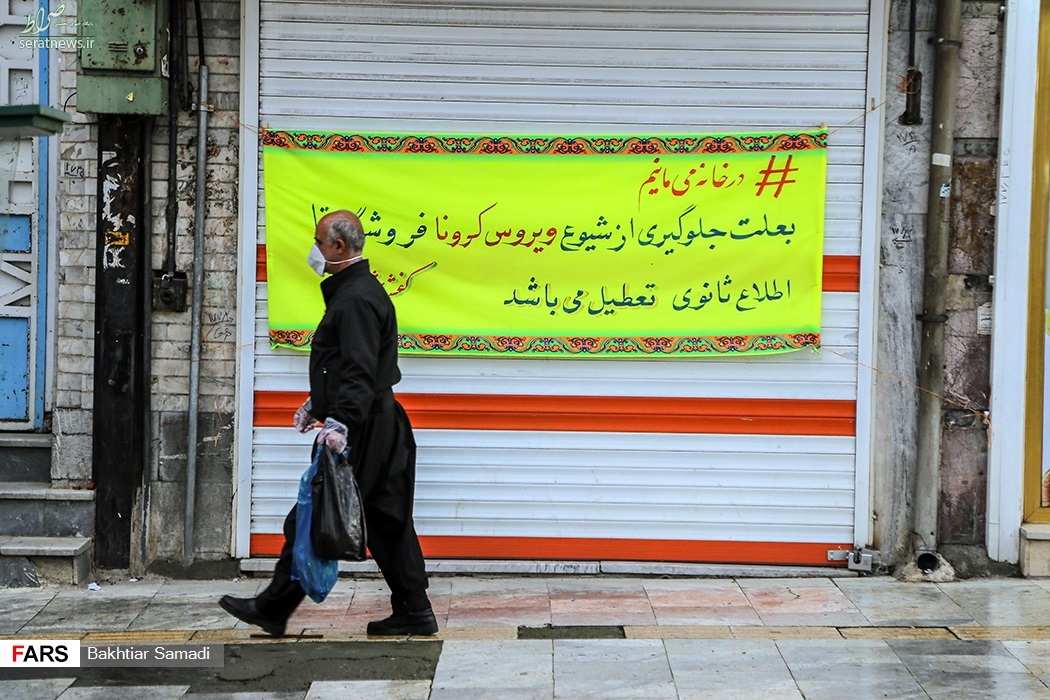 صراط
seratnews.ir
# درخانه می مانیم
بعلت جلوگیری از شیوع ویروس کرونا فروشگ تا
اطلاع ثانوی تعطیل می باشد
کفش
FARS
Bakhtiar Samadi